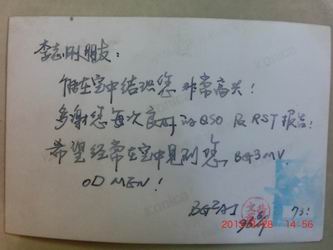 李志刚朋友：
能在空中结识您非常高兴！
多谢您每次良好的QSO及RST报告！
希望经常在空中见到您 BG3MV.
OD MEN！
73！
2019/01/28 14:56